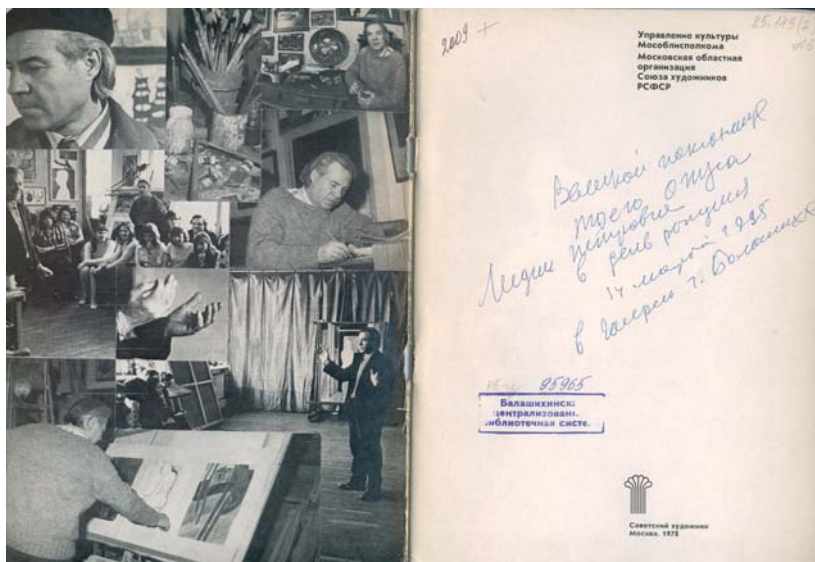 2009 +
85.143(2)
Управление культуры
Мособлисполкома
Московская областная
организация
Союза художников
РСФСР
моего отца
Лидии Петровне
в день
14 1995
в г. Балашихе
95965
Балашихинск
централизован.
библиотечная систе.
Советский художник
Москва. 1978